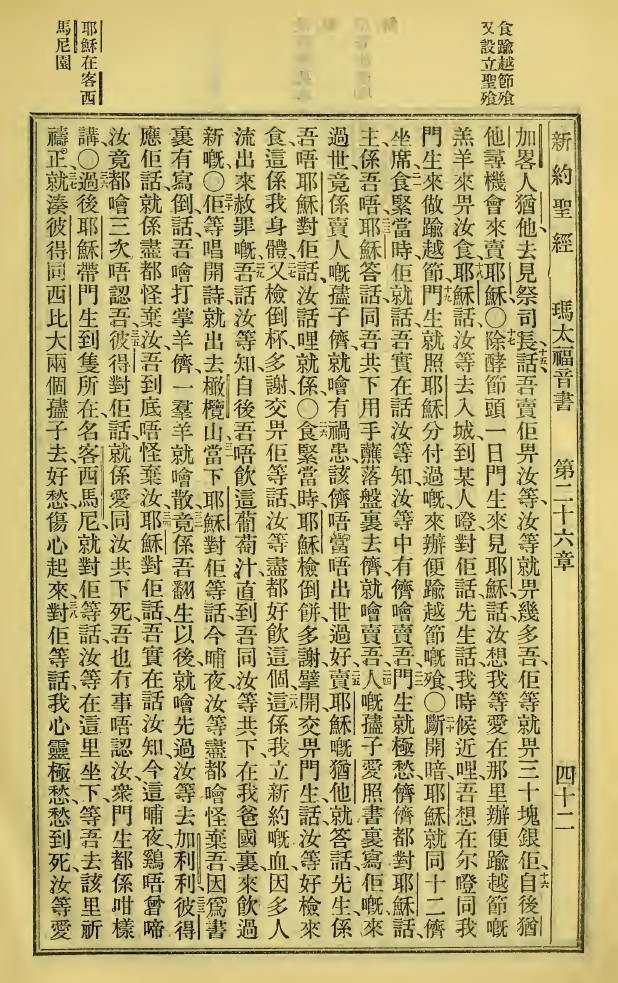 食踰越節飱
又設立聖飱
耶穌在客西
馬尼園
新約聖經 瑪太福音書 第二十六章 四十二
加畧人猶他去見祭司長話吾賣佢畀汝等汝等就畀幾多吾佢等就畀三十塊銀佢自後猶
他尋機會來賣耶穌〇除酵節頭一日門生來見耶穌話汝想我等愛在那里辦便踰越節嘅
羔羊來畀汝食耶穌話汝等去入城到某人嶝對佢話先生話我時候近哩吾想在尔嶝同我
門生來做踰越節門生就照耶穌分付過嘅來辦便踰越節嘅飱〇斷開暗耶穌就同十二儕
坐席食緊當時佢就話吾實在話汝等知汝等中有儕噲賣吾門生就極愁儕儕都對耶穌話
主係吾唔耶穌答話同吾共下用手蘸落盤裏去儕就噲賣吾人嘅孻子愛照書裏寫佢嘅來
過世竟係賣人嘅孻子儕就噲有禍患該儕唔當唔出世過好賣耶穌嘅猶他就答話先生係
吾唔耶穌對佢話汝話哩就係〇食緊當時耶穌檢倒餅多謝擘開交畀門生話汝等好檢來
食這係我身體又檢倒杯多謝交畀佢等話汝等盡都好飲這個這係我立新約嘅血因多人
流出來赦罪嘅吾話汝等知自後吾唔飲這葡萄汁直到吾同汝等共下在我爸國裏來飲過
新嘅〇佢等唱開詩就出去橄欖山當下耶穌對佢等話今晡夜汝等盡都噲怪棄吾因爲書
裏有寫倒話吾噲打掌羊儕一羣羊就噲散竟係吾翻生以後就噲先過汝等去加利利彼得
應佢話就係盡都怪棄汝吾到底唔怪棄汝耶穌對佢話吾實在話汝知今這晡夜鷄唔曾啼
汝竟都噲三次唔認吾彼得對佢話就係愛同汝共下死吾也有事唔認汝衆門生都係咁樣
講〇過後耶穌帶門生到隻所在名客西馬尼就對佢等話汝等在這里坐下等吾去該里祈
禱正就湊彼得同西比大兩個孻子去好愁傷心起來對佢等話我心靈極愁愁到死汝等愛